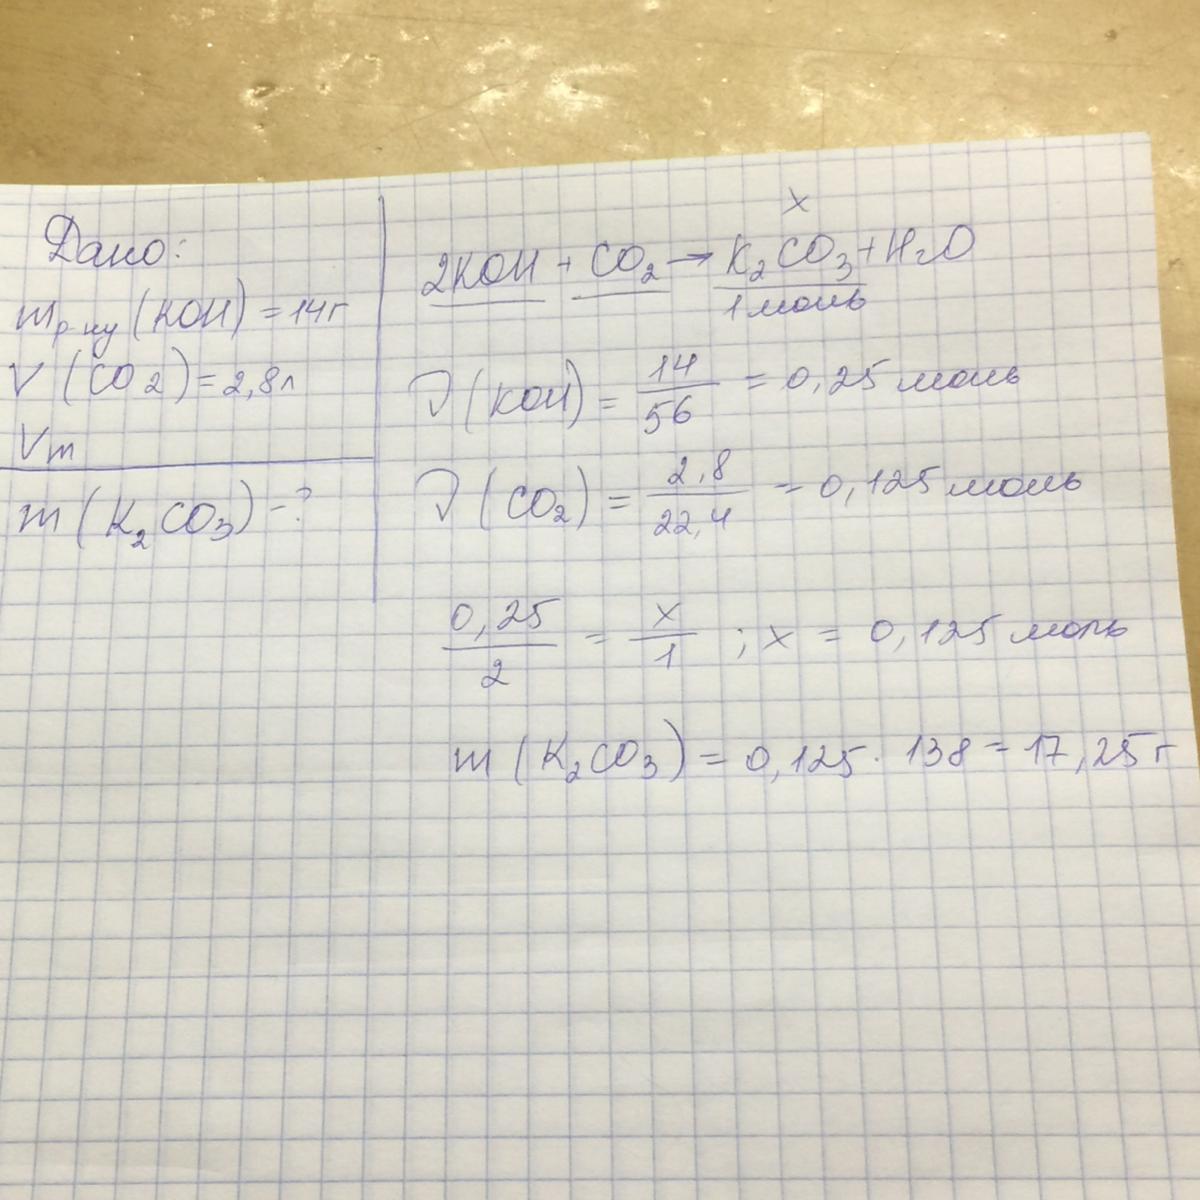 Дано:
m р-ну (KOH) = 14г
V (CO₂) = 2,8л
Vm
m (K₂CO₃) - ?
x
2KOH + CO₂ → K₂CO₃ + H₂O
1 моль
ν (KOH) = 14/56 = 0,25 моль
ν (CO₂) = 2,8/22,4 = 0,125 моль
0,25/2 = x/1 ; x = 0,125 моль
m (K₂CO₃) = 0,125 · 138 = 17,25г